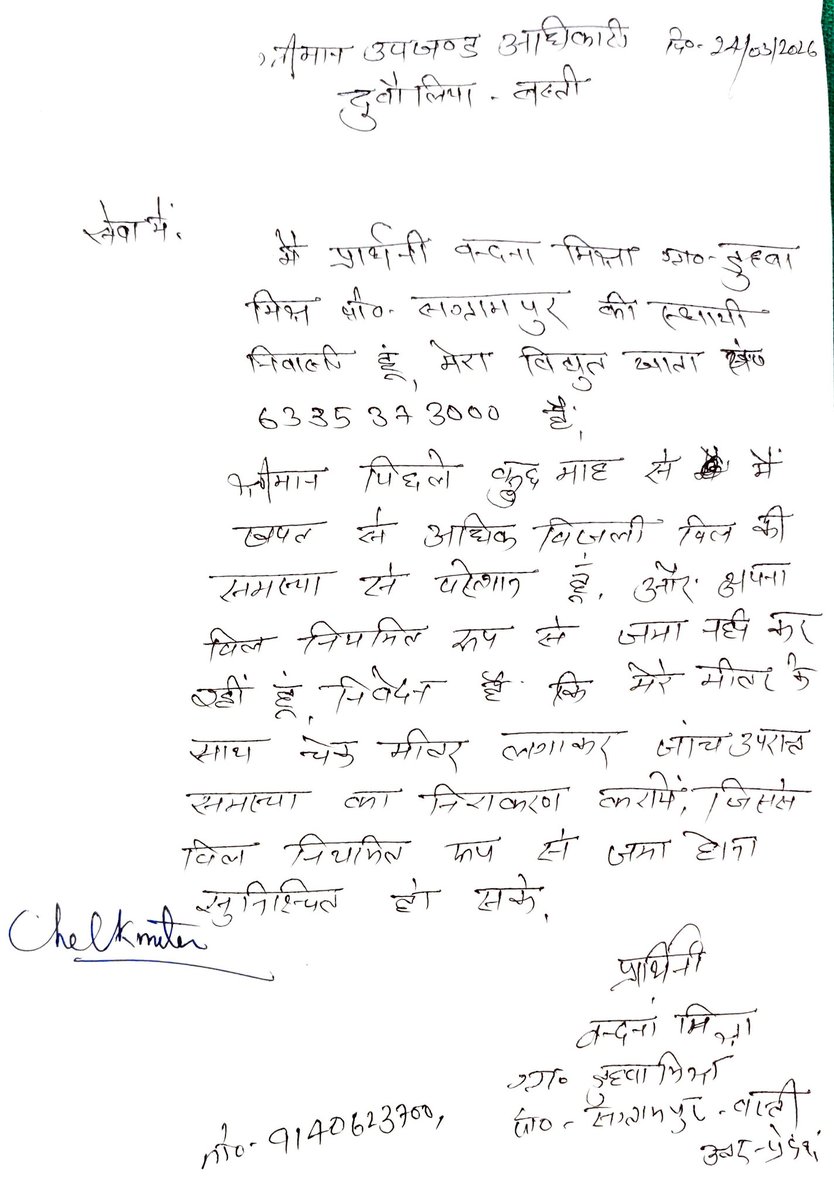 श्रीमान उपखण्ड अधिकारी दि०- 24/03/2026
दुबौलिया - बस्ती
सेवा में,
मै प्रार्थिनी वन्दना मिश्रा ग्रा०- डुहवा
मिश्र पो०- सग्रामपुर की स्थायी
निवासी हूं, मेरा विद्युत खाता सं०
6335373000 है,
श्रीमान पिछले कुछ माह से मैं
खपत से अधिक बिजली बिल की
समस्या से परेशान हूं, और अपना
बिल नियमित रूप से जमा नही कर
रहीं हूं, निवेदन है कि मेरे मीटर के
साथ चेक मीटर लगाकर जांच उपरान्त
समस्या का निराकरण करायें, जिससे
बिल नियमित रूप से जमा होना
सुनिश्चित हो सके,
Chelkmeter
प्रार्थिनी
वन्दना मिश्रा
ग्रा० डुहवा मिश्र
पो०- संग्रामपुर - बस्ती
उत्तर-प्रदेश
मो०- 9140623700,